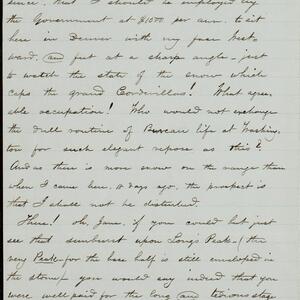 since, that I should be employed by
the Government at $1500 per ann. to sit
here in Denver with my face West-
ward, and feet at a sharp angle - just
to watch the state of the snow which
caps the grand Cordirillous! What agree-
able occupation! Who would not exchange
the dull routine of Bureau life at Washing-
ton for such elegant repose as this?
And as there is more snow on the range than
when I came here, 10 days ago, the prospect is
that I shall not be disturbed.
There! oh, Jane, if you could but just
see that sunburst upon Long's Peak - (the
very Peak - for the base half is still enveloped in
the storm) - you would say indeed that you
were well paid for the long and tedious stage